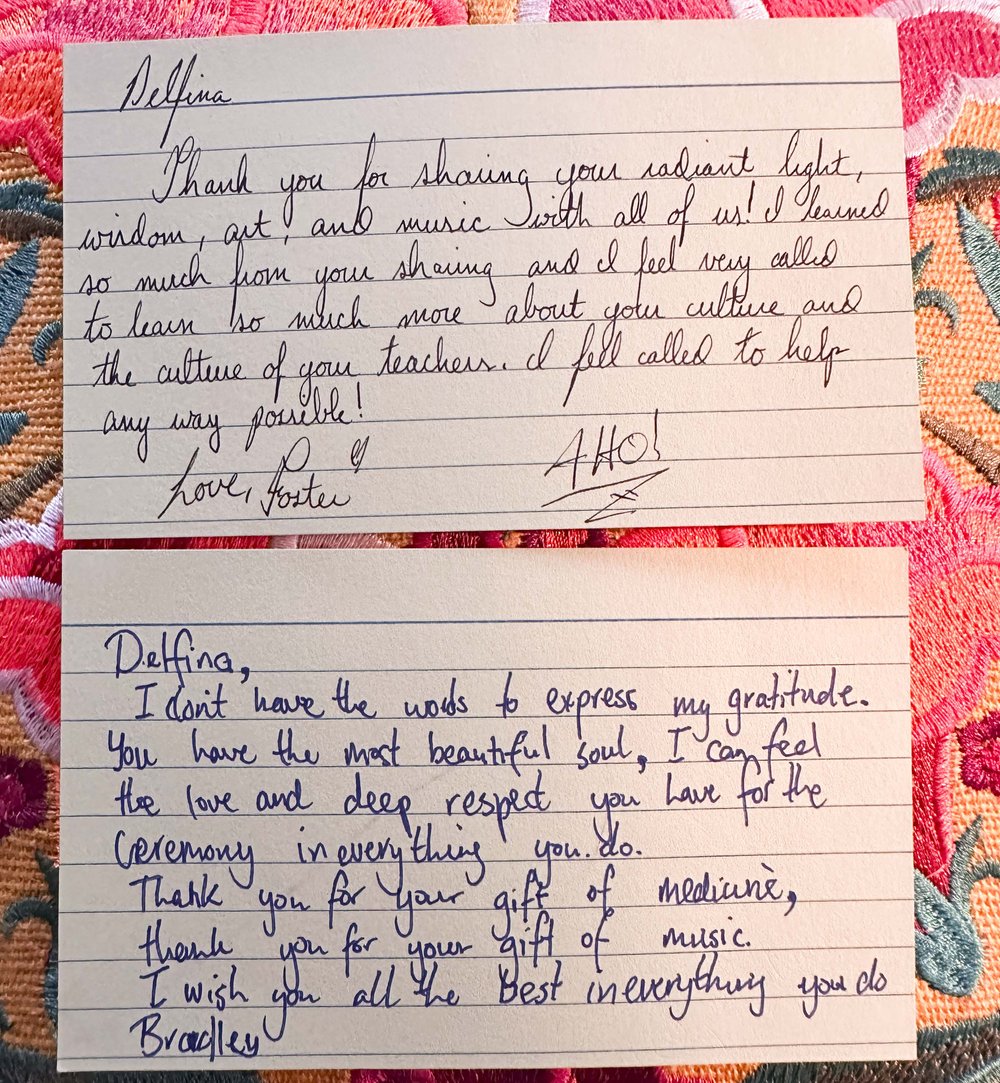 Delfina
Thank you for sharing your radiant light,
wisdom, art, and music with all of us! I learned
so much from your sharing and I feel very called
to learn so much more about your culture and
the culture of your teachers. I feel called to help
any way possible!
Love, Foster
AHO!
Delfina,
I don't have the words to express my gratitude.
You have the most beautiful soul, I can feel
the love and deep respect you have for the
Ceremony in everything you do.
Thank you for your gift of medicine,
thank you for your gift of music.
I wish you all the Best in everything you do
Bradley